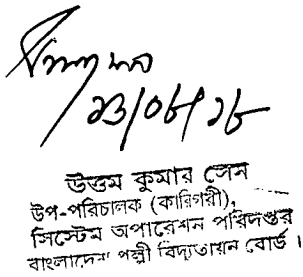 ২৩/০৮/১৮
উত্তম কুমার সেন
উপ-পরিচালক (কারিগরী),
সিস্টেম অপারেশন পরিদপ্তর
বাংলাদেশ পল্লী বিদ্যুতায়ন বোর্ড।